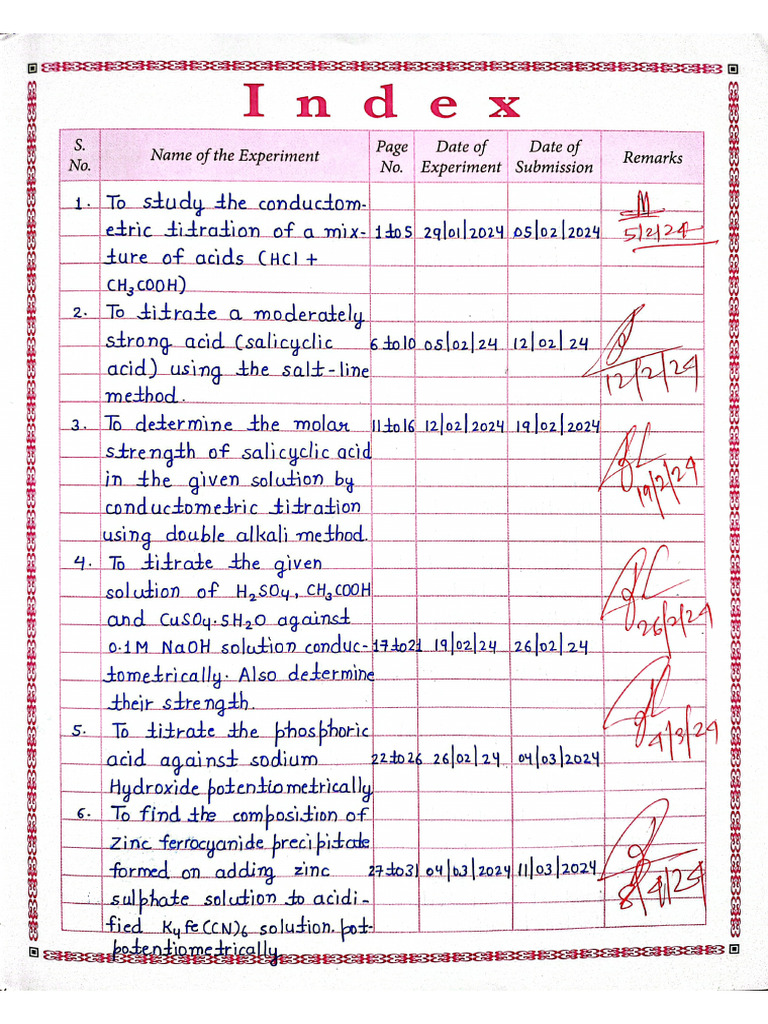 Index
S. No. Name of the Experiment Page No. Date of Experiment Date of Submission Remarks
1. To study the conductom-
etric titration of a mix- 1 to 5 29/01/2024 05/02/2024 5/2/24
ture of acids (HCl +
CH3COOH)
2. To titrate a moderately
strong acid (salicyclic 6 to 10 05/02/24 12/02/24
acid) using the salt-line 12/2/24
method.
3. To determine the molar 11 to 16 12/02/2024 19/02/2024
strength of salicyclic acid
in the given solution by 19/2/24
conductometric titration
using double alkali method.
4. To titrate the given
solution of H2SO4, CH3COOH
and CuSO4.5H2O against 26/2/24
0.1M NaOH solution conduc- 17 to 21 19/02/24 26/02/24
tometrically. Also determine
their strength.
5. To titrate the phosphoric 4/3/24
acid against sodium 22 to 26 26/02/24 04/03/2024
Hydroxide potentiometrically
6. To find the composition of
zinc ferrocyanide precipitate
formed on adding zinc 27 to 31 04/03/2024 11/03/2024
sulphate solution to acidi- 8/4/24
fied K4Fe(CN)6 solution. pot-
potentiometrically